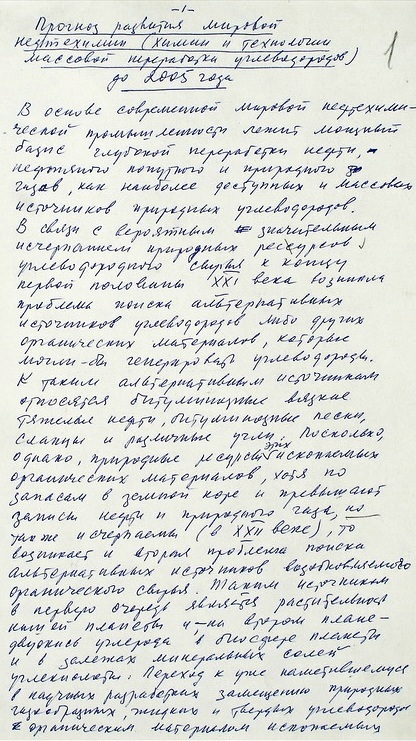 -1-
Прогноз развития мировой
нефтехимии (химии и технологии
массовой переработки углеводородов)
до 2005 года
1
В основе современной мировой нефтехими-
ческой промышленности лежит мощный
базис глубокой переработки нефти,
нефтяного попутного и природного
газов, как наиболее доступных и массовых
источников природных углеводородов.
В связи с вероятным значительным
исчерпанием природных рессурсов
углеводородного сырья к концу
первой половины XXI века возникла
проблема поиска альтернативных
источников углеводородов либо других
органических материалов, которые
могли-бы генерировать углеводороды.
К таким альтернативным источникам
относятся битуминозные вязкие
тяжелые нефти, битуминозные пески,
сланцы и различные угли. Поскольку,
однако, природные ресурсы этих ископаемых
органических материалов, хотя по
запасам в земной коре и превышают
запасы нефти и природного газа, но
также исчерпаемы (в XXII веке), то
возникает и вторая проблема поиска
альтернативных источников возобновляемого
органического сырья. Таким источником
в первую очередь является растительность
нашей планеты и - на втором плане -
двуокись углерода в биосфере планеты
и в залежах минеральных солей
углекислоты. Переход к уже наметившемуся
в научных разработках замещению природных
газообразных, жидких и твердых углеводородов
органическим материалом ископаемых